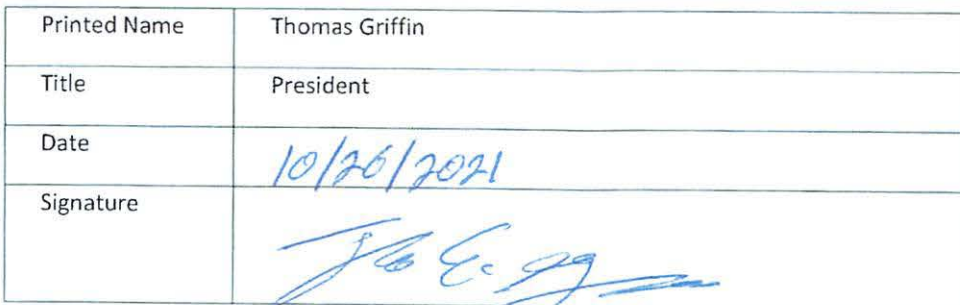 Printed Name Thomas Griffin
Title President
Date 10/26/2021
Signature